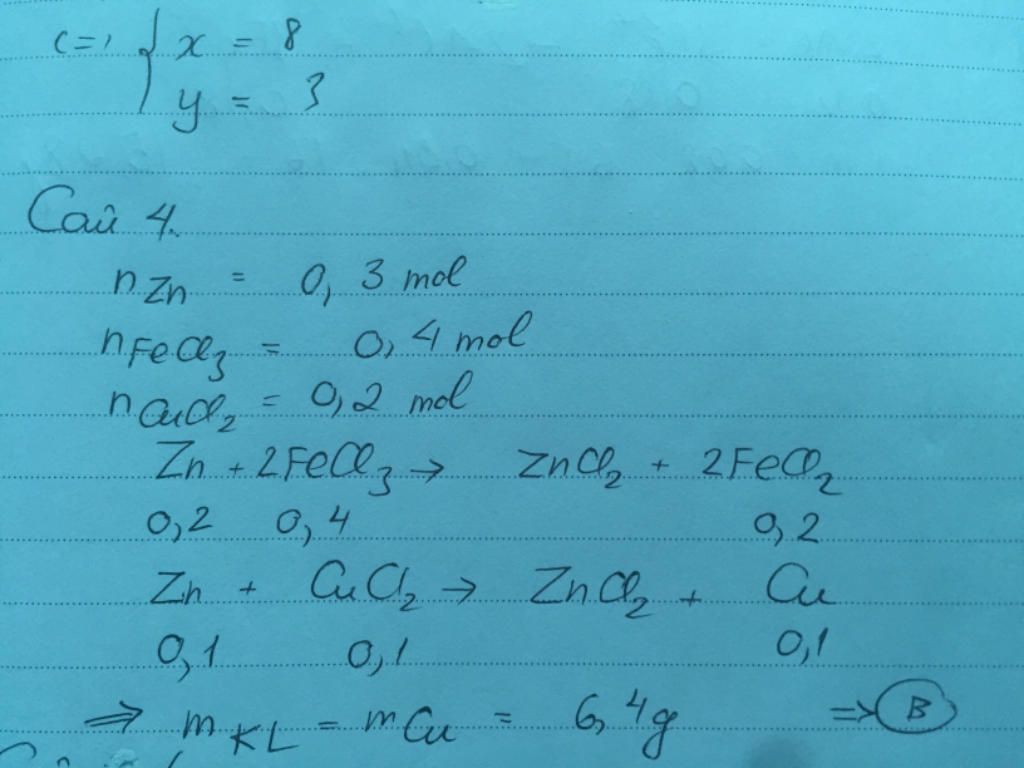 <=> { x = 8
y = 3
Câu 4.
n Zn = 0,3 mol
n FeCl₃ = 0,4 mol
n CuCl₂ = 0,2 mol
Zn + 2FeCl₃ → ZnCl₂ + 2FeCl₂
0,2 0,4 0,2
Zn + CuCl₂ → ZnCl₂ + Cu
0,1 0,1 0,1
⇒ m KL = m Cu = 6,4g ⇒ B